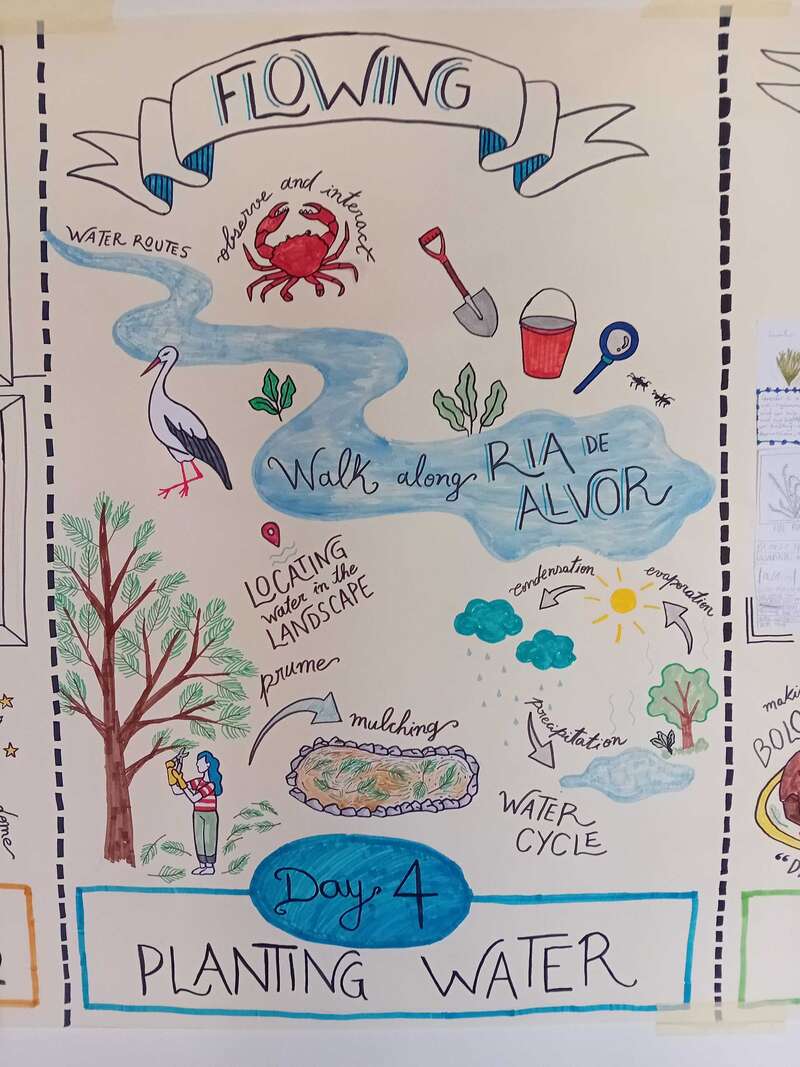 FLOWING
observe and interact
WATER ROUTES
Walk along RIA DE
ALVOR
LOCATING
water in the
LANDSCAPE
condensation
evaporation
prume
mulching
precipitation
WATER
CYCLE
Day 4
PLANTING WATER
dome
making
BOLO
"D